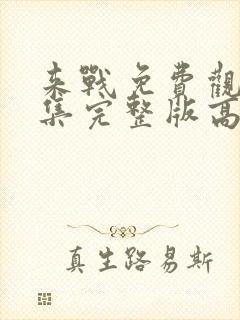 来戰免費觀
集完整版高
真生路易斯